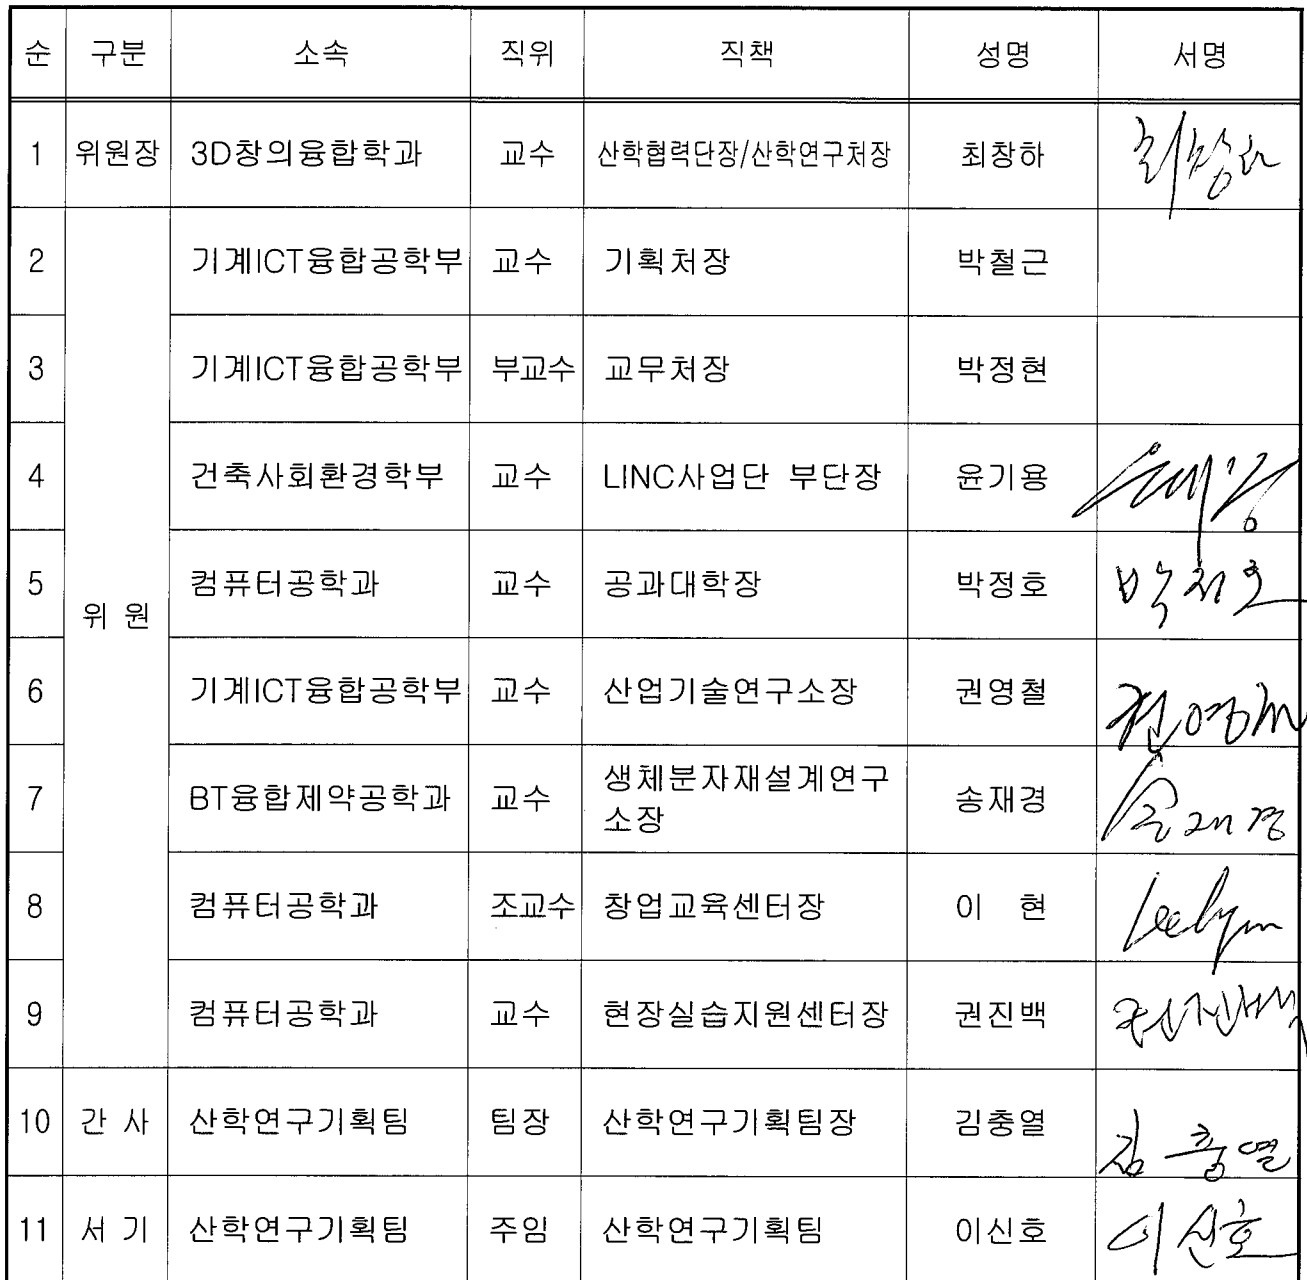 순 구분 소속 직위 직책 성명 서명
1 위원장 3D창의융합학과 교수 산학협력단장/산학연구처장 최창하 최창하
2 기계ICT융합공학부 교수 기획처장 박철근
3 기계ICT융합공학부 부교수 교무처장 박정현
4 건축사회환경학부 교수 LINC사업단 부단장 윤기용
5 컴퓨터공학과 교수 공과대학장 박정호
위 원
6 기계ICT융합공학부 교수 산업기술연구소장 권영철
7 BT융합제약공학과 교수 생체분자재설계연구
소장 송재경
8 컴퓨터공학과 조교수 창업교육센터장 이 현
9 컴퓨터공학과 교수 현장실습지원센터장 권진백
10 간 사 산학연구기획팀 팀장 산학연구기획팀장 김충열 김충열
11 서 기 산학연구기획팀 주임 산학연구기획팀 이신호 이신호